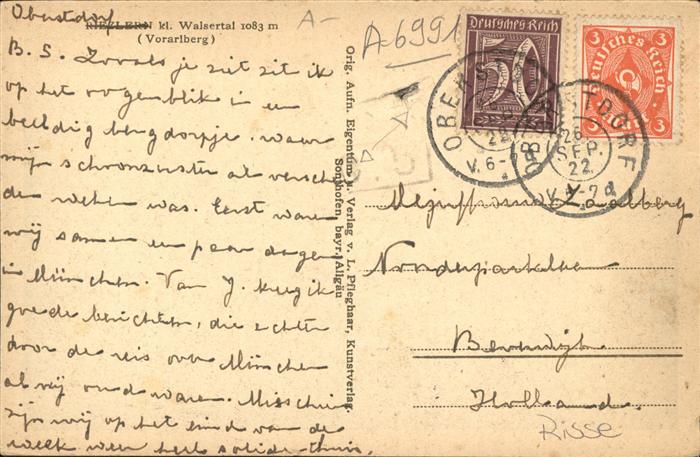 Oberstdorf
RIEZLERN kl. Walsertal 1083 m
(Vorarlberg)
B. S. Zooals je ziet zit ik
op het oogenblik in een
beeldig bergdorpje. waar
mijn schoonzuster al verschei
dene weken was. Eerst waren
wij samen een paar dagen
in München. Van J. kreeg ik
goede berichten, die echter
door de reis over München
al vrij oud waren. Misschien
zijn wij op het eind van de
week weer heel solide thuis.
Orig. Aufn. Eigentum u. Verlag v. L. Pfleghaar, Kunstverlag
Sonthofen, bayr. Allgäu
A-
A-6991
Deutsches Reich
50
Deutsches Reich
3 3
3 3
OBERSTDORF
22
V. 6-7
OBERSTDORF
26
SEP.
22
V. 6-7
Mejuffrouw
Holland.
Risse